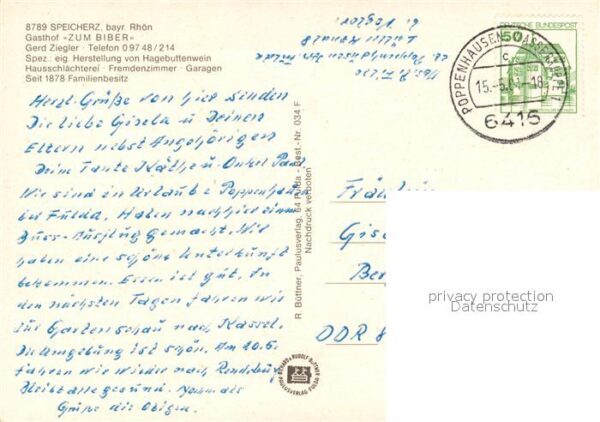 8789 SPEICHERZ, bayr. Rhön
Gasthof »ZUM BIBER«
Gerd Ziegler · Telefon 0 97 48 / 214
Spez.: eig. Herstellung von Hagebuttenwein
Hausschlachterei · Fremdenzimmer · Garagen
Seit 1878 Familienbesitz
Herzl. Grüße von hier senden
Dir liebe Gisela u Deinen
Eltern nebst Angehörigen
Deine Tante Käthe u. Onkel
Wir sind in Urlaub i. Poppenhausen
bei Fulda. Haben nach hier einen
Buss-Ausflug gemacht. Wir
haben eine schöne Unterkunft
bekommen. Essen ist gut. In
den nächsten Tagen fahren wir
zur Gartenschau nach Kassel.
Die Umgebung ist schön. Am 20.6.
fahren wir wieder nach Rendsburg
Bleibt alle gesund. Nochmals
Grüße die Obigen.
R. Büttner, Paulusverlag, 64 Fulda - Best.-Nr. 034 F
Nachdruck verboten
RUDOLF BÜTTNER
PAULUSVERLAG FULDA
DEUTSCHE BUNDESPOST
50
POPPENHAUSEN (WASSERKUPPE) 1
c
15.-6.81.-18
6415
Fräulein
Gise
Ber
DDR 8
privacy protection
Datenschutz